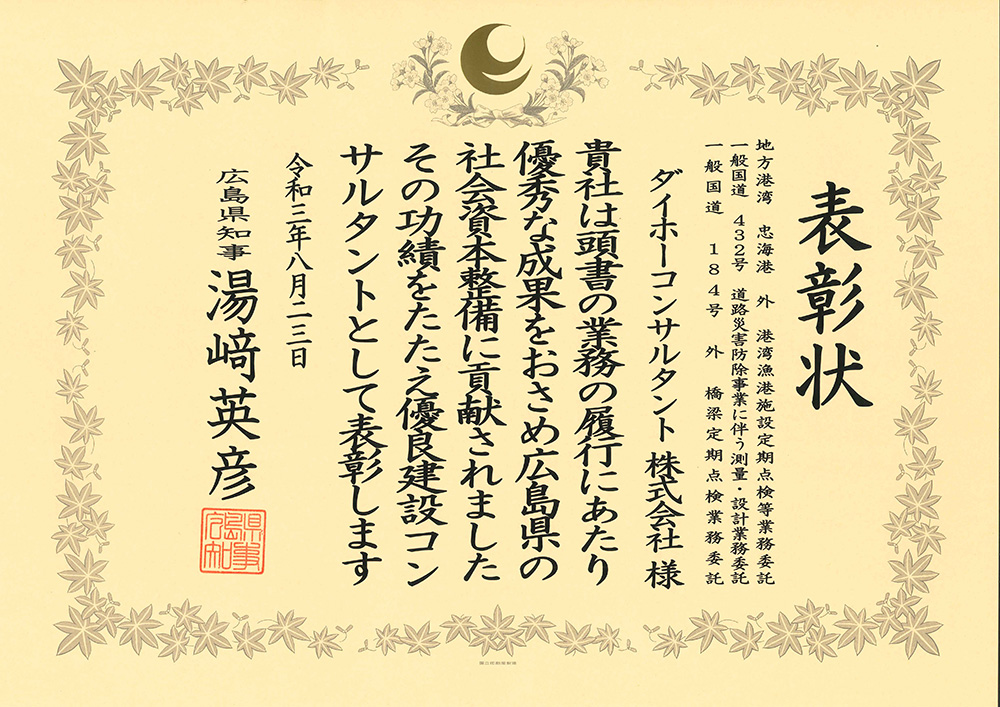 表彰状
地方港湾　忠海港　外　港湾漁港施設定期点検等業務委託
一般国道　432号　道路災害防除事業に伴う測量・設計業務委託
一般国道　184号　外　橋梁定期点検業務委託
ダイホーコンサルタント 株式会社 様
貴社は頭書の業務の履行にあたり
優秀な成果をおさめ広島県の
社会資本整備に貢献されました
その功績をたたえ優良建設コン
サルタントとして表彰します
令和三年八月二三日
広島県知事 湯﨑英彦